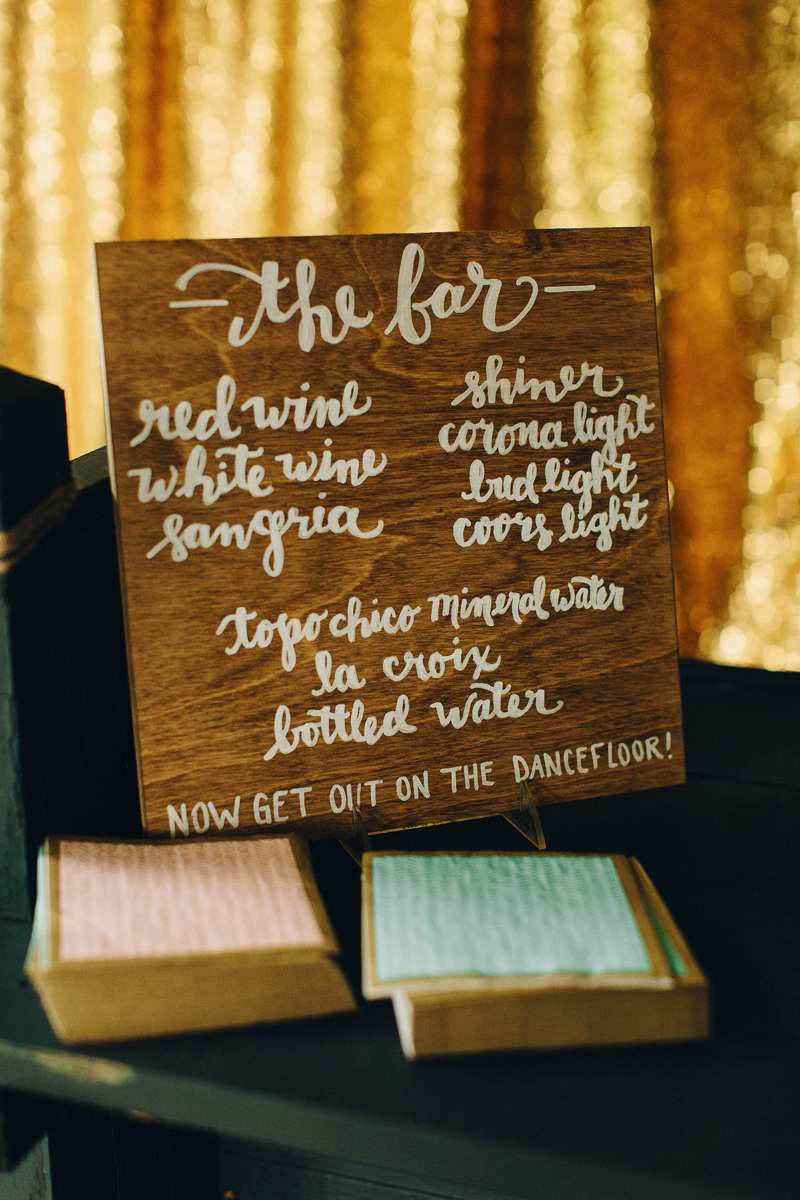 the bar
red wine
white wine
sangria
shiner
corona light
bud light
coors light
topo chico mineral water
la croix
bottled water
NOW GET OUT ON THE DANCEFLOOR!